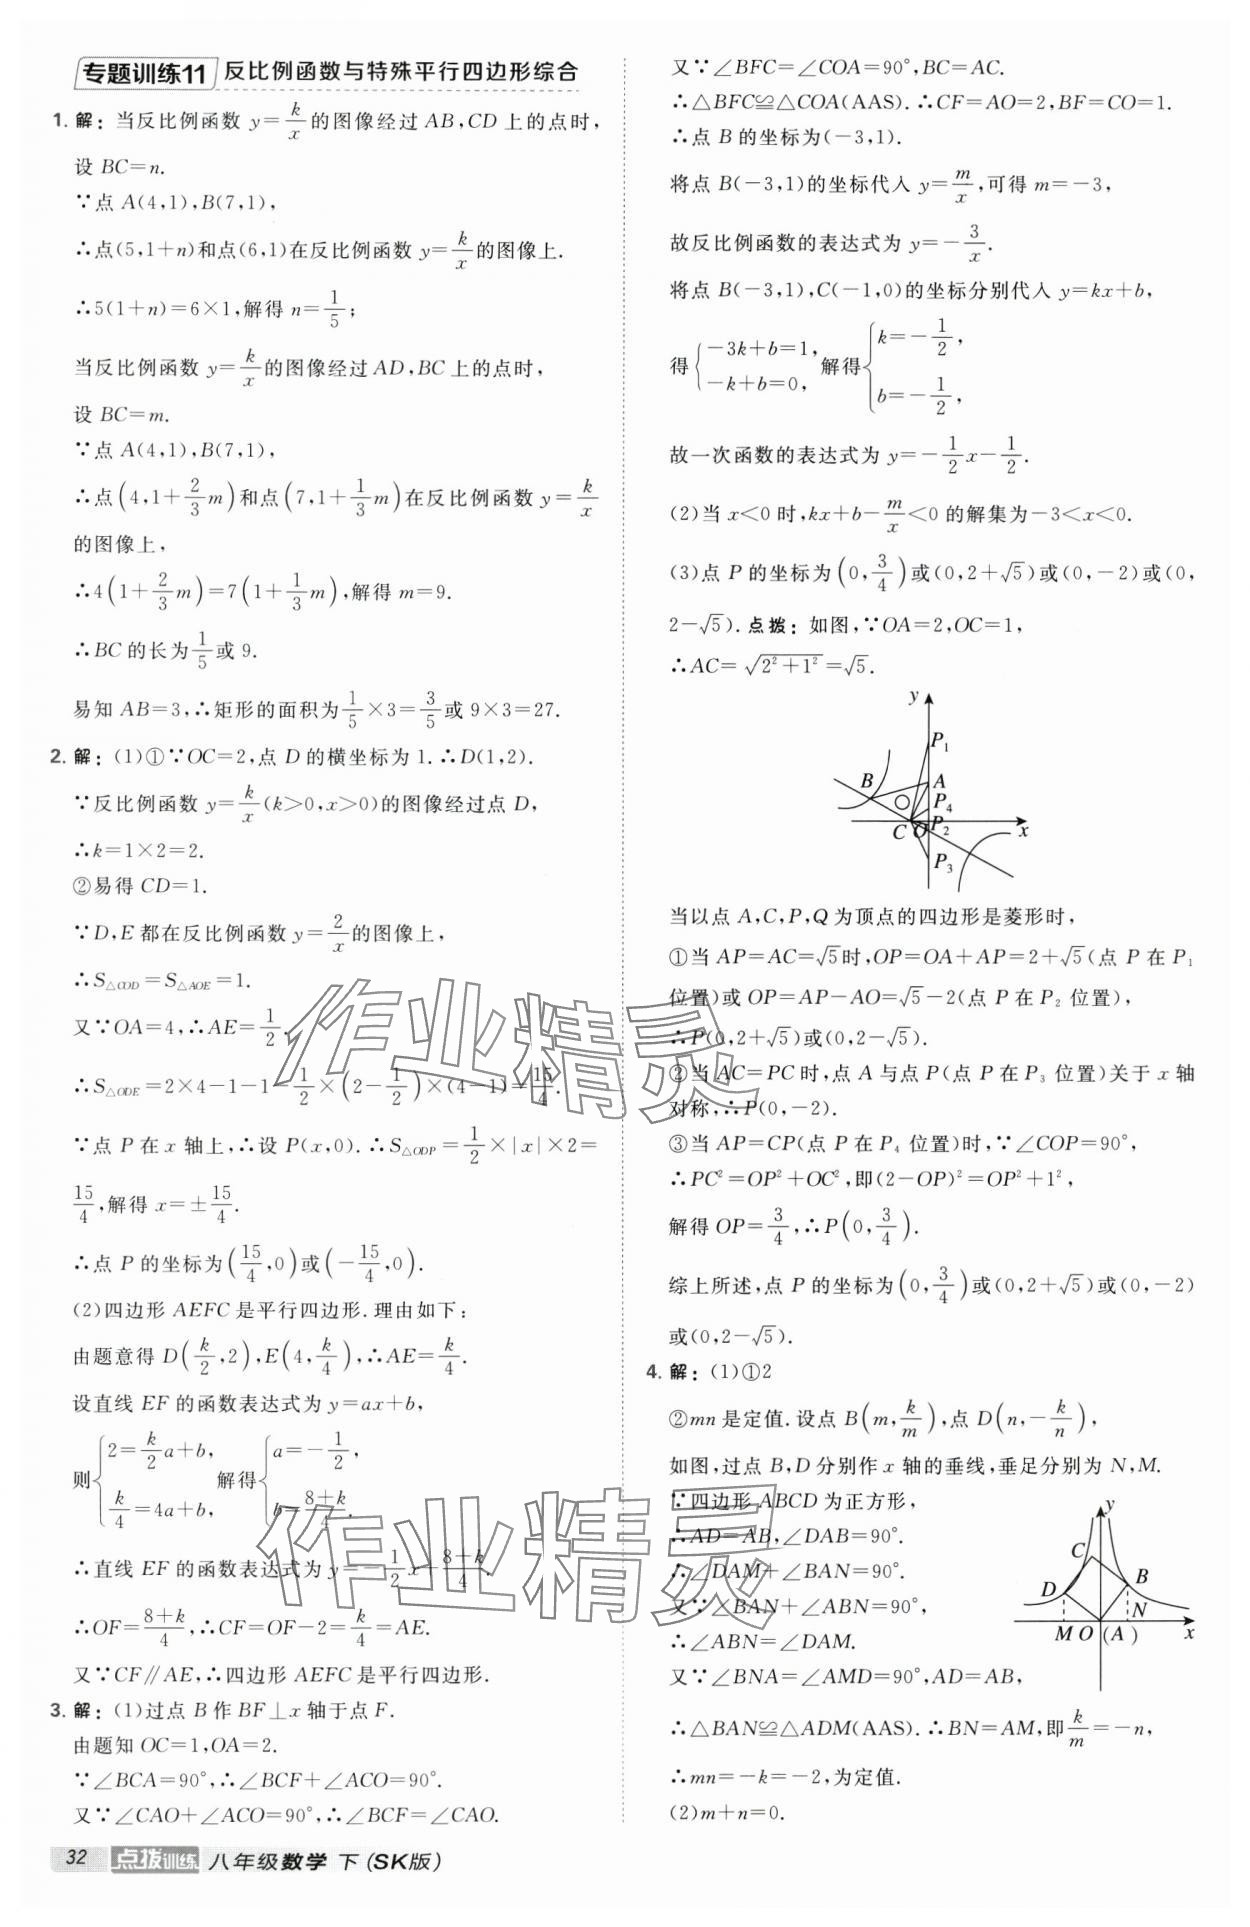 专题训练11 反比例函数与特殊平行四边形综合
1. 解：当反比例函数 y=k/x的图像经过 AB,CD 上的点时,
设 BC=n.
∵点 A(4,1),B(7,1),
∴点(5,1+n)和点(6,1)在反比例函数 y=k/x的图像上.
∴5(1+n)=6×1,解得 n=1/5;
当反比例函数 y=k/x的图像经过 AD,BC 上的点时,
设 BC=m.
∵点 A(4,1),B(7,1),
∴点(4,1+2/3m)和点(7,1+1/3m)在反比例函数 y=k/x
的图像上,
∴4(1+2/3m)=7(1+1/3m),解得 m=9.
∴BC 的长为1/5或 9.
易知 AB=3,∴矩形的面积为1/5×3=3/5或 9×3=27.
2. 解：(1)①∵OC=2,点 D 的横坐标为 1.∴D(1,2).
∵反比例函数 y=k/x(k>0,x>0)的图像经过点 D,
∴k=1×2=2.
②易得 CD=1.
∵D,E 都在反比例函数 y=2/x的图像上,
∴S△COD=S△AOE=1.
又∵OA=4,∴AE=1/2.
∴S△ODE=2×4-1-1-1/2×(2-1/2)×(4-1)=15/4.
∵点 P 在 x 轴上,∴设 P(x,0).∴S△ODP=1/2×|x|×2=
15/4,解得 x=±15/4.
∴点 P 的坐标为(15/4,0)或(-15/4,0).
(2)四边形 AEFC 是平行四边形.理由如下:
由题意得 D(k/2,2),E(4,k/4),∴AE=k/4.
设直线 EF 的函数表达式为 y=ax+b,
则{2=k/2a+b, k/4=4a+b, 解得{a=-1/2, b=8+k/4.
∴直线 EF 的函数表达式为 y=-1/2x+8+k/4.
∴OF=8+k/4,∴CF=OF-2=k/4=AE.
又∵CF∥AE,∴四边形 AEFC 是平行四边形.
3. 解：(1)过点 B 作 BF⊥x 轴于点 F.
由题知 OC=1,OA=2.
∵∠BCA=90°,∴∠BCF+∠ACO=90°.
又∵∠CAO+∠ACO=90°,∴∠BCF=∠CAO.
又∵∠BFC=∠COA=90°,BC=AC.
∴△BFC≌△COA(AAS).∴CF=AO=2,BF=CO=1.
∴点 B 的坐标为(-3,1).
将点 B(-3,1)的坐标代入 y=m/x,可得 m=-3,
故反比例函数的表达式为 y=-3/x.
将点 B(-3,1),C(-1,0)的坐标分别代入 y=kx+b,
得{-3k+b=1, -k+b=0, 解得{k=-1/2, b=-1/2,
故一次函数的表达式为 y=-1/2x-1/2.
(2)当 x<0 时,kx+b-m/x<0 的解集为-3<x<0.
(3)点 P 的坐标为(0,3/4)或(0,2+√5)或(0,-2)或(0,
2-√5).点拨：如图,∵OA=2,OC=1,
∴AC=√2²+1²=√5.
y
P1
B
A
P4
C
O
P2
x
P3
当以点 A,C,P,Q 为顶点的四边形是菱形时,
①当 AP=AC=√5时,OP=OA+AP=2+√5(点 P 在 P1
位置)或 OP=AP-AO=√5-2(点 P 在 P2 位置),
∴P(0,2+√5)或(0,2-√5).
②当 AC=PC 时,点 A 与点 P(点 P 在 P3 位置)关于 x 轴
对称,∴P(0,-2).
③当 AP=CP(点 P 在 P4 位置)时,∵∠COP=90°,
∴PC²=OP²+OC²,即(2-OP)²=OP²+1²,
解得 OP=3/4,∴P(0,3/4).
综上所述,点 P 的坐标为(0,3/4)或(0,2+√5)或(0,-2)
或(0,2-√5).
4. 解：(1)①2
②mn 是定值.设点 B(m,k/m),点 D(n,-k/n),
如图,过点 B,D 分别作 x 轴的垂线,垂足分别为 N,M.
∵四边形 ABCD 为正方形,
∴AD=AB,∠DAB=90°.
∴∠DAM+∠BAN=90°.
又∵∠BAN+∠ABN=90°,
∴∠ABN=∠DAM.
又∵∠BNA=∠AMD=90°,AD=AB,
y
C
D
B
N
M O (A)
x
∴△BAN≌△ADM(AAS).∴BN=AM,即k/m=-n,
∴mn=-k=-2,为定值.
(2)m+n=0.
32 点拨训练 八年级数学 下 (SK版)
作业精灵
作业精灵